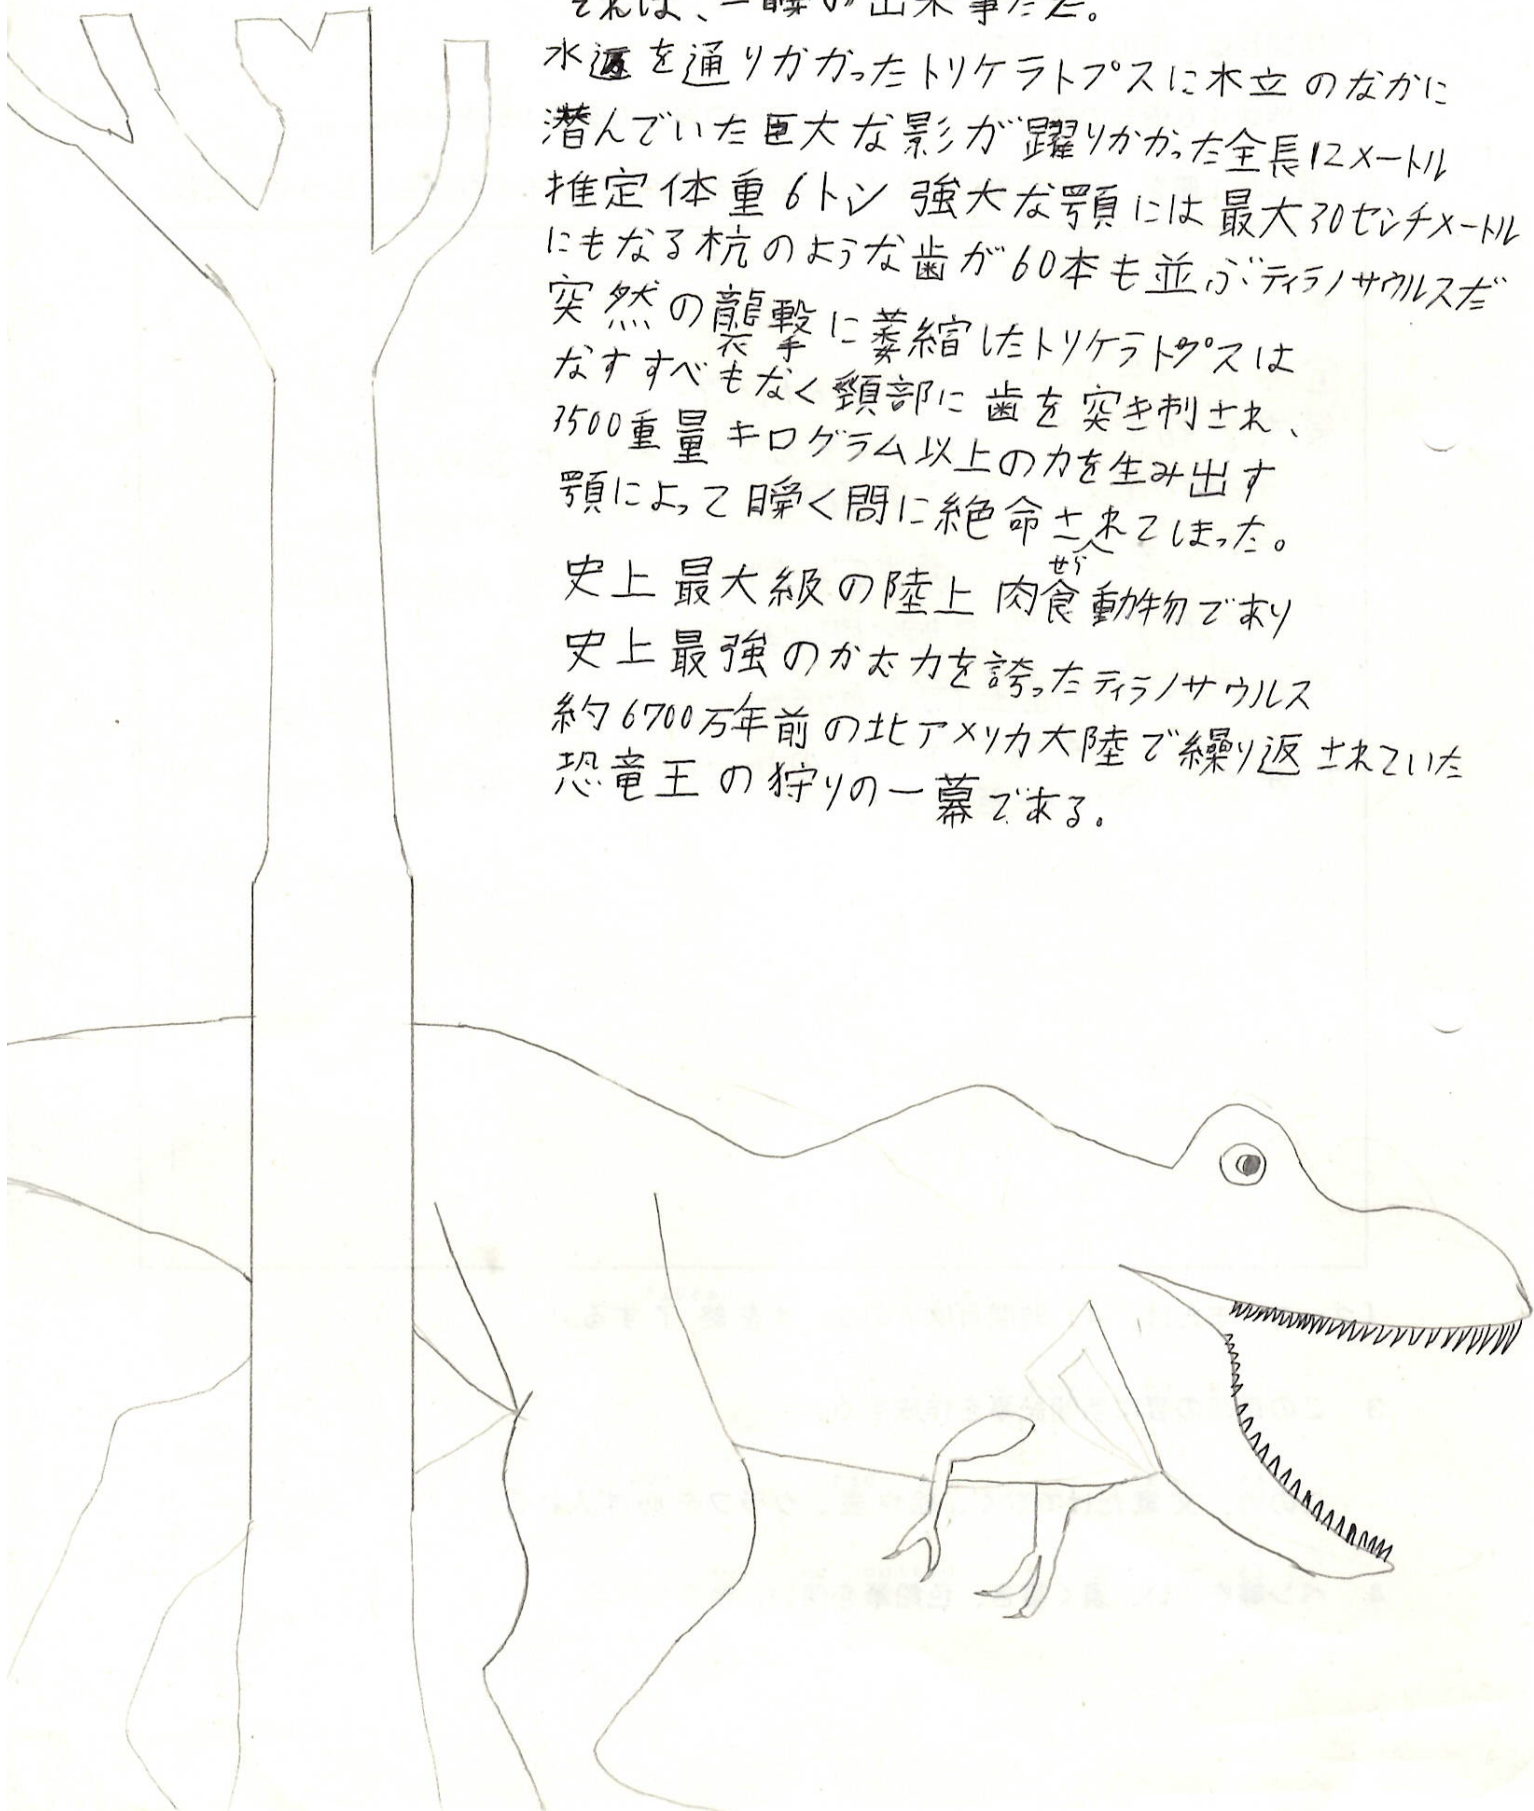 それは、一瞬の出来事だた。
水辺を通りかかったトリケラトプスに木立のなかに
潜んでいた巨大な影が躍りかかった全長12メートル
推定体重6トン 強大な顎には最大30センチメートル
にもなる杭のような歯が60本も並ぶティラノサウルスだ
突然の襲撃に萎縮したトリケラトプスは
なすすべもなく頸部に歯を突き刺され、
3500重量キログラム以上の力を生み出す
顎によって瞬く間に絶命させられてしまった。
史上最大級の陸上肉食動物であり
史上最強のかむ力を誇ったティラノサウルス
約6700万年前の北アメリカ大陸で繰り返されていた
恐竜王の狩りの一幕である。